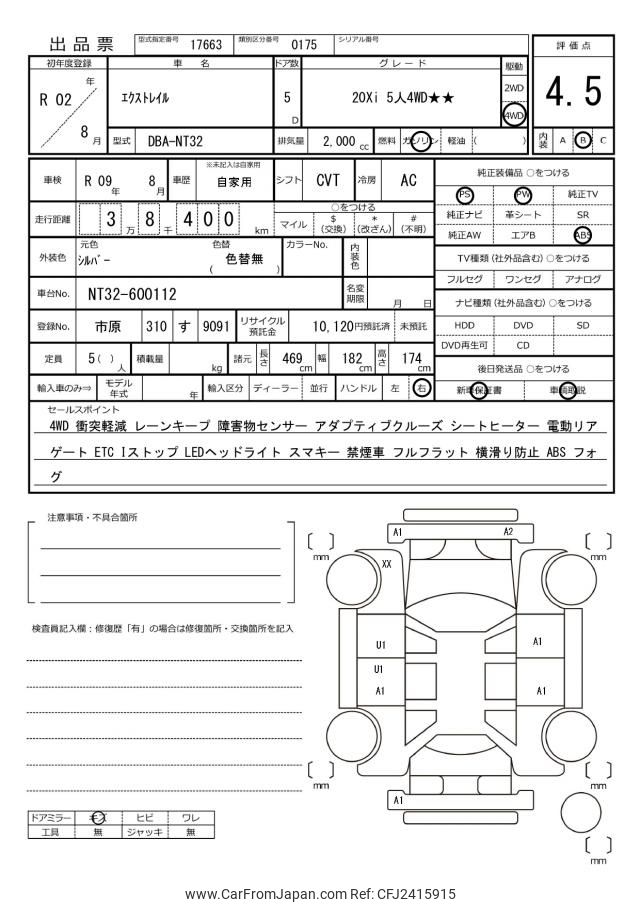 出品票 型式指定番号 17663 類別区分番号 0175 シリアル番号
評価点
4.5
初年度登録 車名 ドア数 グレード 駆動
R 02 年 8 月
エクストレイル
5 D
20Xi 5人4WD★★
2WD
4WD
型式 DBA-NT32 排気量 2,000 cc 燃料 ガソリン 軽油 ( )
内装 A B C
車検 R 09 年 8 月 車歴 ※未記入は自家用 自家用 シフト CVT 冷房 AC
純正装備品 ○をつける
PS PW 純正TV
純正ナビ 革シート SR
純正AW エアB ABS
走行距離 3 万 8 千 4 0 0 km
○をつける
マイル $ (交換) * (改ざん) # (不明)
外装色 元色 シルバー 色替 ( 色替無 ) カラーNo. 内装色
TV種類 (社外品含む) ○をつける
フルセグ ワンセグ アナログ
車台No. NT32-600112 名変期限 月 日
ナビ種類 (社外品含む) ○をつける
HDD DVD SD
DVD再生可 CD
登録No. 市原 310 す 9091 リサイクル預託金 10,120 円預託済 未預託
定員 5 ( ) 人 積載量 kg 諸元 長さ 469 cm 幅 182 cm 高さ 174 cm
後日発送品 ○をつける
新車保証書 車輌取説
輸入車のみ⇒ モデル年式 年 輸入区分 ディーラー 並行 ハンドル 左 右
セールスポイント
4WD 衝突軽減 レーンキープ 障害物センサー アダプティブクルーズ シートヒーター 電動リア
ゲート ETC Iストップ LEDヘッドライト スマキー 禁煙車 フルフラット 横滑り防止 ABS フォ
グ
注意事項・不具合箇所
検査員記入欄：修復歴「有」の場合は修復箇所・交換箇所を記入
A1 A2
XX
U1 A1
U1
A1 A1
A1
mm mm
mm mm
mm
ドアミラー キズ ヒビ ワレ
工具 無 ジャッキ 無
www.CarFromJapan.com Ref: CFJ2415915